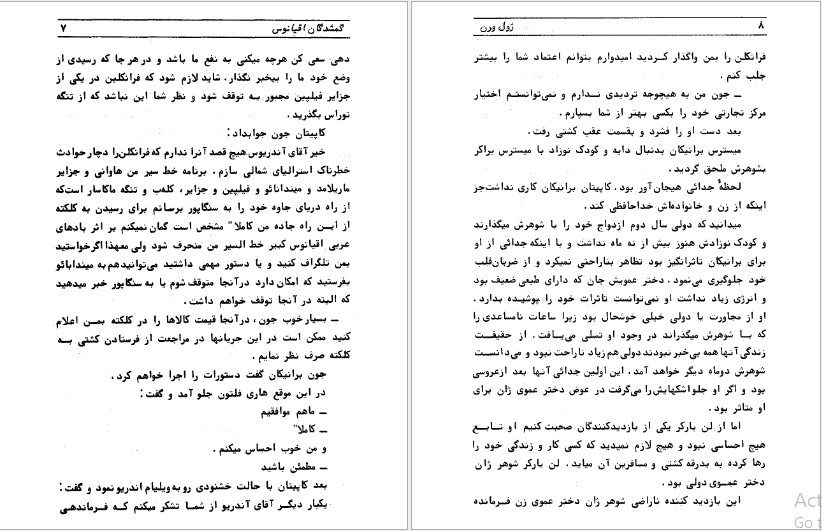 گمشدگان اقیانوس ۷
دهی سعی کن هرچه میکنی به نفع ما باشد و در هر جا که رسیدی از
وضع خود ما را بیخبر نگذار. شاید لازم شود که فرانکلین در یکی از
جزایر فیلپین مجبور به توقف شود و نظر شما این نباشد که از تنگه
توراس بگذرید.
کاپیتان جون جوابداد:
خیر آقای آندریوس هیچ قصد آنرا ندارم که فرانکلن را دچار حوادث
خطرناک استرالیای شمالی سازم. برنامه خط سیر من هاوانی و جزایر
ماریلامد و میندانائو و فیلپین و جزایر، کلهب و تنگه ماکاسار است که
از راه دریای جاوه خود را به سنگاپور برسانم برای رسیدن به کلکته
از این راه جاده من کاملا" مشخص است گمان نمیکنم بر اثر بادهای
غربی اقیانوس کبیر خط السیر من منحرف شود ولی معهذا اگر خواستید
بمن تلگراف کنید و یا دستور مهمی داشتید می‌توانید هم به میندابائو
بفرستید که امکان دارد در آنجا متوقف شوم یا به سنگاپور خبر میدهید
که البته در آنجا توقف خواهم داشت.
ــ بسیار خوب جون، در آنجا قیمت کالاها را در کلکته بمن اعلام
کنید ممکن است در این جریانها در مراجعت از فرستادن کشتی به
کلکته صرف نظر نمایم.
جون برانیکان گفت دستورات را اجرا خواهم کرد.
در این موقع هاری فلتون جلو آمد و گفت:
ــ ماهم موافقیم
ــ کاملا"
و من خوب احساس میکنم.
ــ مطمئن باشید
بعد کاپیتان با حالت خشنودی رو به ویلیام اندریو نمود و گفت:
یکبار دیگر آقای آندریو از شما تشکر میکنم که فرماندهی
۸ ژول ورن
فرانکلن را بمن واگذار کردید امیدوارم بتوانم اعتماد شما را بیشتر
جلب کنم.
ــ جون من به هیچوجه تردیدی ندارم و نمی‌توانستم اختیار
مرکز تجارتی خود را بکسی بهتر از شما بسپارم.
بعد دست او را فشرد و بقسمت عقب کشتی رفت.
میسترس برانیکان بدنبال دایه و کودک نوزاد با میسترس براکر
بشوهرش ملحق گردید.
لحظهٔ جدائی هیجان‌آور بود. کاپیتان برانیکان کاری نداشت جز
اینکه از زن و خانواده‌اش خداحافظی کند.
میدانید که دولی سال دوم ازدواج خود را با شوهرش میگذارند
و کودک نوزادش هنوز بیش از نه ماه نداشت و با اینکه جدائی از او
برای برانیکان تاثرانگیز بود تظاهر بناراحتی نمیکرد و از ضربان قلب
خود جلوگیری می‌نمود. دختر عمویش جان که دارای طبعی ضعیف بود
و انرژی زیاد نداشت او نمی‌توانست تاثرات خود را پوشیده بدارد.
او از مجاورت با دولی خیلی خوشحال بود زیرا ساعات نامساعدی را
که با شوهرش میگذراند در وجود او تسلی می‌یافت. از حقیقت
زندگی آنها همه بی‌خبر نبودند دولی هم زیاد ناراحت نبود و می‌دانست
شوهرش دوماه دیگر خواهد آمد. این اولین جدائی آنها بعد از عروسی
بود و اگر او جلو اشکهایش را می‌گرفت در عوض دختر عموی ژان برای
او متاثر بود.
اما از لن بارکر یکی از بازدیدکنندگان صحبت کنیم او تابع
هیچ احساسی نبود و هیچ لازم نمیدید که کسی کار و زندگی خود را
رها کرده به بدرقه کشتی و مسافرین آن میاید. لن بارکر شوهر ژان
دختر عموی دولی بود.
این بازدید کننده ناراضی شوهر ژان دختر عموی زن فرمانده
Act
Go t